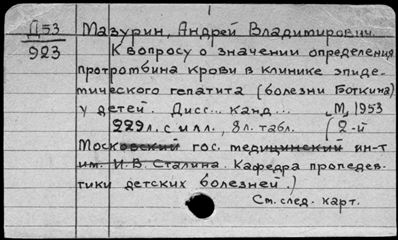 Д53
923
Мазурин, Андрей Владимирович.
К вопросу о значении определения
протромбина крови в клинике эпиде-
мического гепатита (болезни Боткина)
у детей. Дисс... канд... М, 1953
229л. с илл., 8л. табл. (2-й
Московский гос. медицинский ин-т
им. И. В. Сталина. Кафедра пропедев-
тики детских болезней.)
См. след. карт.